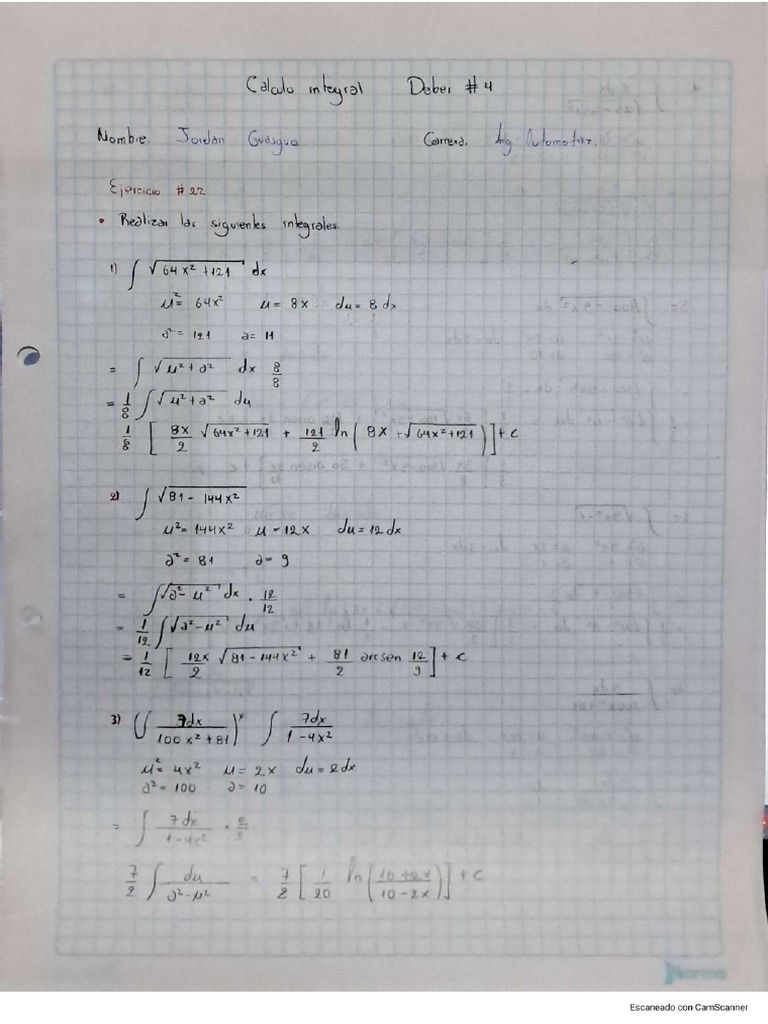 Calculo integral Deber #4
Nombre. Jordan Guasgua Carrera. Ing Automotriz.
Ejercicio #22
• Realizar las siguientes integrales.
1) ∫ √(64x² + 121) dx
u² = 64x² u = 8x du = 8 dx
a² = 121 a = 11
= ∫ √(u² + a²) dx 8/8
= 1/8 ∫ √(u² + a²) du
1/8 [ 8x/2 √(64x² + 121) + 121/2 ln( 8x + √(64x² + 121) ) ] + c
2) ∫ √(81 - 144x²)
u² = 144x² u = 12x du = 12 dx
a² = 81 a = 9
= ∫ √(a² - u²) dx . 12/12
= 1/12 ∫ √(a² - u²) du
= 1/12 [ 12x/2 √(81 - 144x²) + 81/2 arcsen 12/9 ] + c
3) ( ∫ 7dx/(100x² + 81) )ˣ ∫ 7dx/(1 - 4x²)
u² = 4x² u = 2x du = 2dx
a² = 100 a = 10
= ∫ 7dx/(1 - 4x²) * 2/2
7/2 ∫ du/(a² - u²) = 7/2 [ 1/20 ln( (10 + 2x)/(10 - 2x) ) ] + c
norma
Escaneado con CamScanner